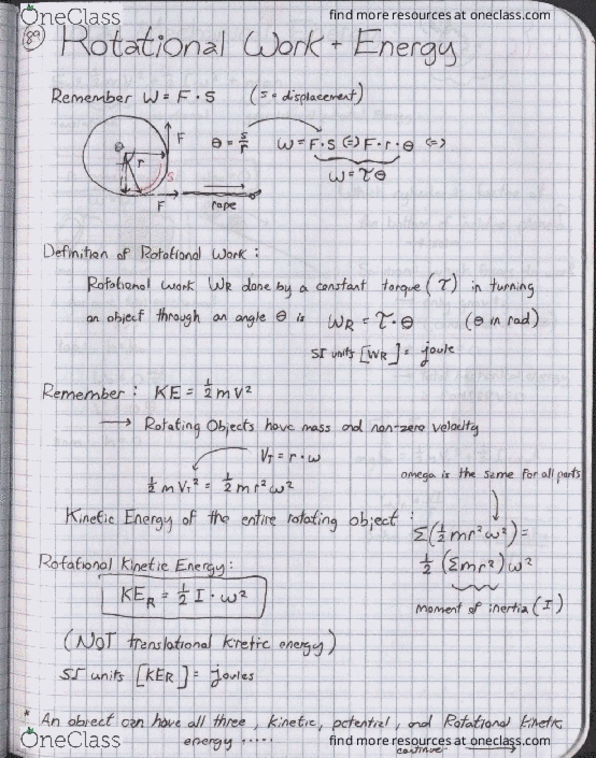 OneClass
find more resources at oneclass.com
89
Rotational Work + Energy
Remember W = F · S (s = displacement)
θ = s/r W = F·S <=> F·r·θ <=>
θ r F s
W = τθ
F rope
Definition of Rotational Work :
Rotational work WR done by a constant torque (τ) in turning
an object through an angle θ is WR = τ·θ (θ in rad)
SI units [WR] = joule
Remember : KE = ½mV²
→ Rotating Objects have mass and non-zero velocity
VT = r·ω
½mVT² = ½mr²ω²
omega is the same for all parts
Kinetic Energy of the entire rotating object :
Σ(½mr²ω²) =
½(Σmr²)ω²
moment of inertia (I)
Rotational Kinetic Energy:
KER = ½ I·ω²
(NOT translational kinetic energy)
SI units [KER] = joules
* An object can have all three, kinetic, potential, and Rotational kinetic
energy .....
continue →
OneClass
find more resources at oneclass.com